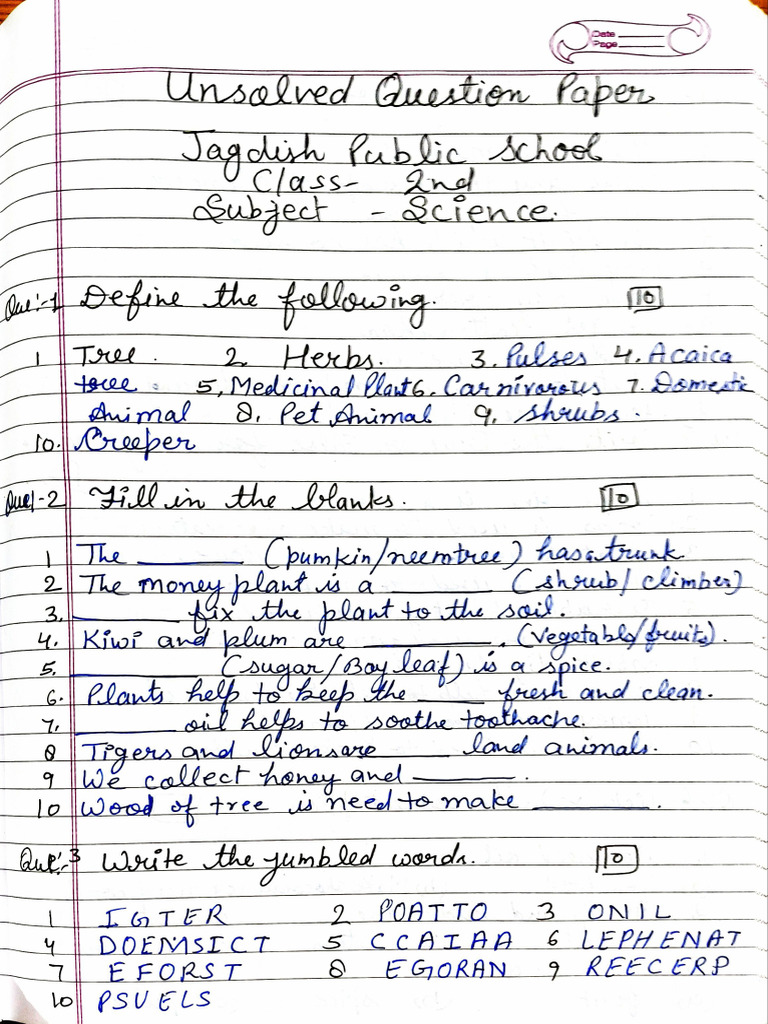 Date
Page
Unsolved Question Paper
Jagdish Public School
Class- 2nd
Subject - Science.
Que:-1 Define the following. 10
1 Tree. 2. Herbs. 3. Pulses 4. Acaica
tree. 5. Medicinal Plant 6. Carnivorous 7. Domestic
Animal 8. Pet Animal 9. Shrubs.
10. Creeper
Que:-2 Fill in the blanks. 10
1 The ______ (pumkin/neemtree) has a trunk
2 The money plant is a ______ (shrub/climber)
3. ______ fix the plant to the soil.
4. Kiwi and plum are ______. (vegetable/fruits).
5. ______ (sugar/Bay leaf) is a spice.
6. Plants help to keep the ____ fresh and clean.
7. ______ oil helps to soothe toothache.
8 Tigers and lions are ____ land animals.
9 We collect honey and ______.
10 Wood of tree is need to make ______.
Que:-3 Write the jumbled words. 10
1 IGTER 2 POATTO 3 ONIL
4 DOEMSICT 5 CCAIAA 6 LEPHENAT
7 EFORST 8 EGORAN 9 REECERP
10 PSUELS